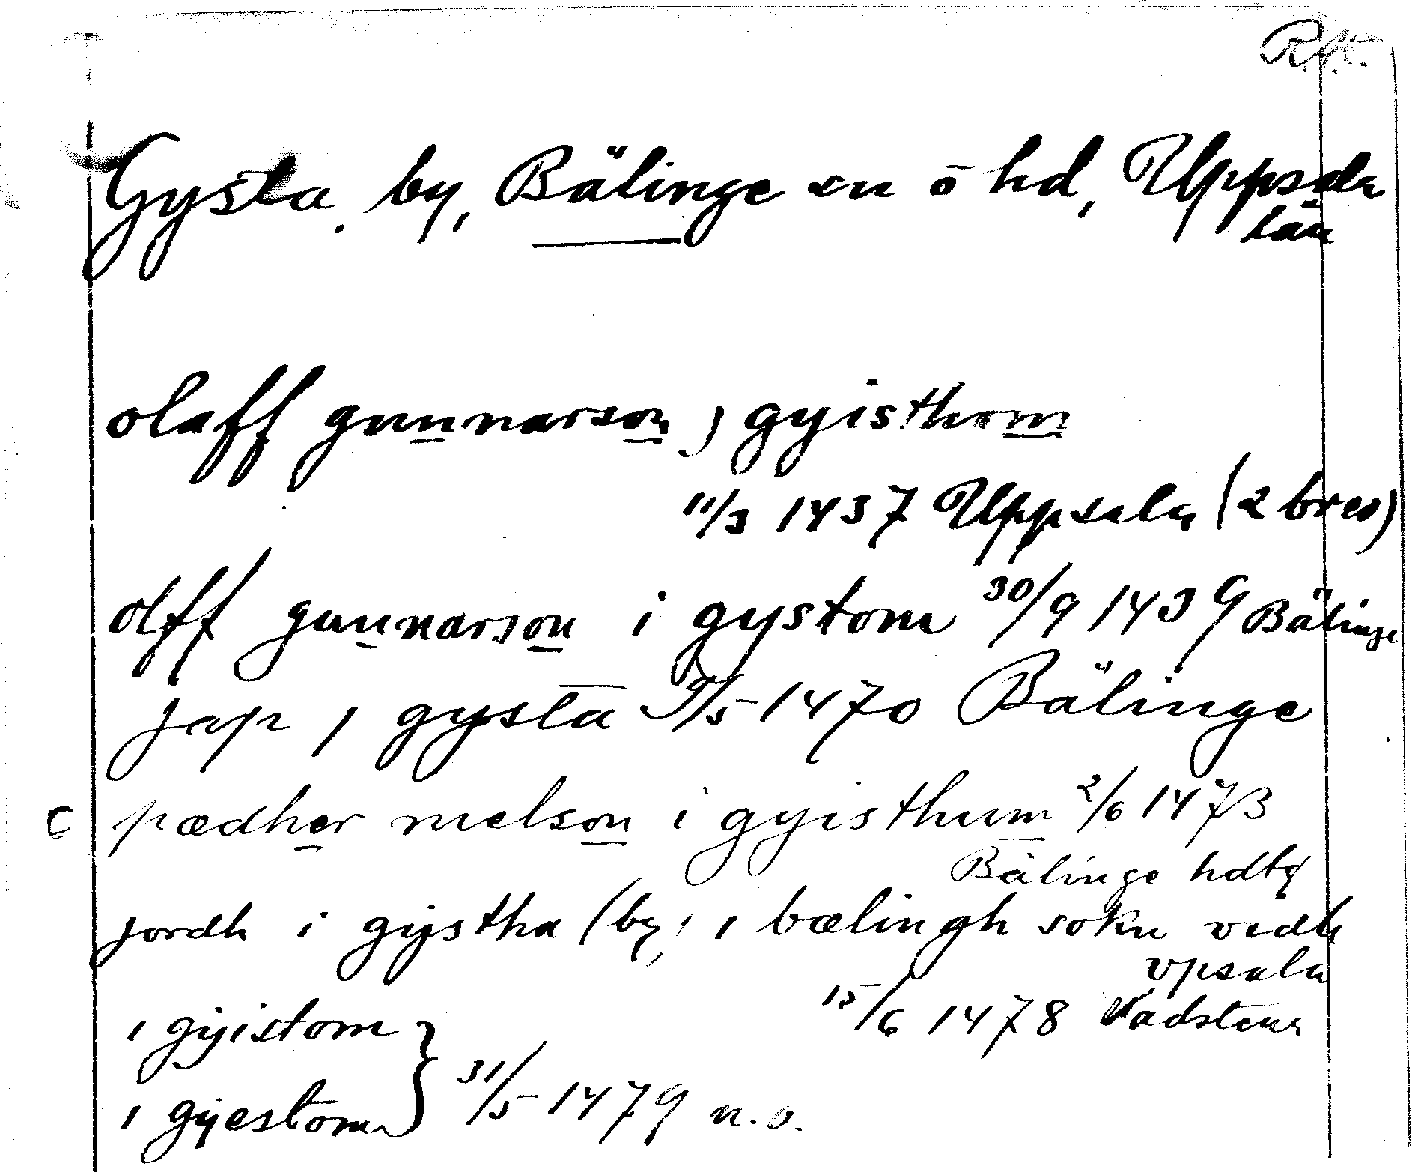 R.A.
Gysta, by, Bälinge sn o hd, Uppsala
län
olaff gunnarson j gyisthom
11/3 1437 Uppsala (2 brev)
olff gunnarson i gystom 30/9 1439 Bälinge
jap ı gysta 9/5 1470 Bälinge
c pædher nielson i gyisthum 2/6 1473
Bälinge hdtg
jordh i gijstha (by) ı bælingh sokn vedh
vpsala
15/6 1478 Vadstena
ı gyistom
ı gyestom } 31/5 1479 n.o.